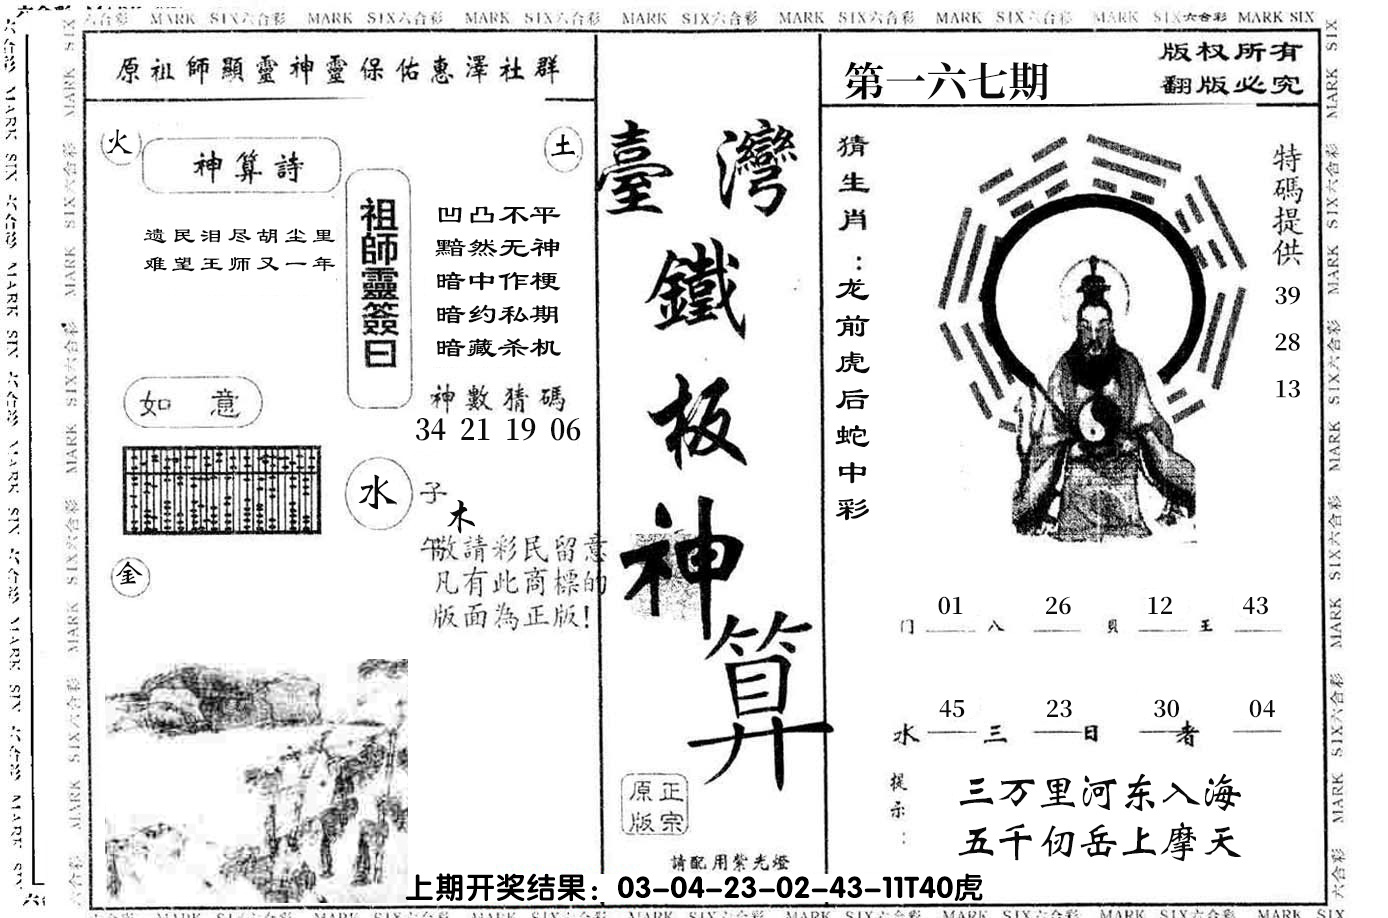 六合彩 MARK SIX六合彩 MARK SIX六合彩 MARK SIX六合彩 MARK SIX六合彩 MARK SIX六合彩 MARK SIX六合彩 MARK SIX六合彩 MARK SIX
原祖師顯靈神靈保佑惠澤社群
火
神算詩
土
遗民泪尽胡尘里
难望王师又一年
祖師靈簽曰
凹凸不平
黯然无神
暗中作梗
暗约私期
暗藏杀机
神數猜碼
34 21 19 06
如意
水
子
木
午
金
敬請彩民留意
凡有此商標的
版面為正版!
臺灣
鐵
板
神
算
正宗
原版
請配用紫光燈
第一六七期
版权所有
翻版必究
猜生肖：龙前虎后蛇中彩
特碼提供
39
28
13
门 01 八 26 貝 12 王 43
水 45 三 23 日 30 者 04
提示：
三万里河东入海
五千仞岳上摩天
上期开奖结果：03-04-23-02-43-11T40虎